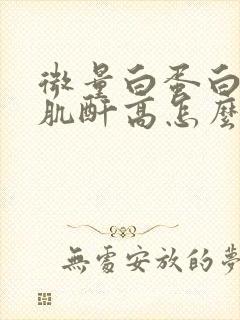 微量白蛋白
肌酐高怎麼
無處安放的夢